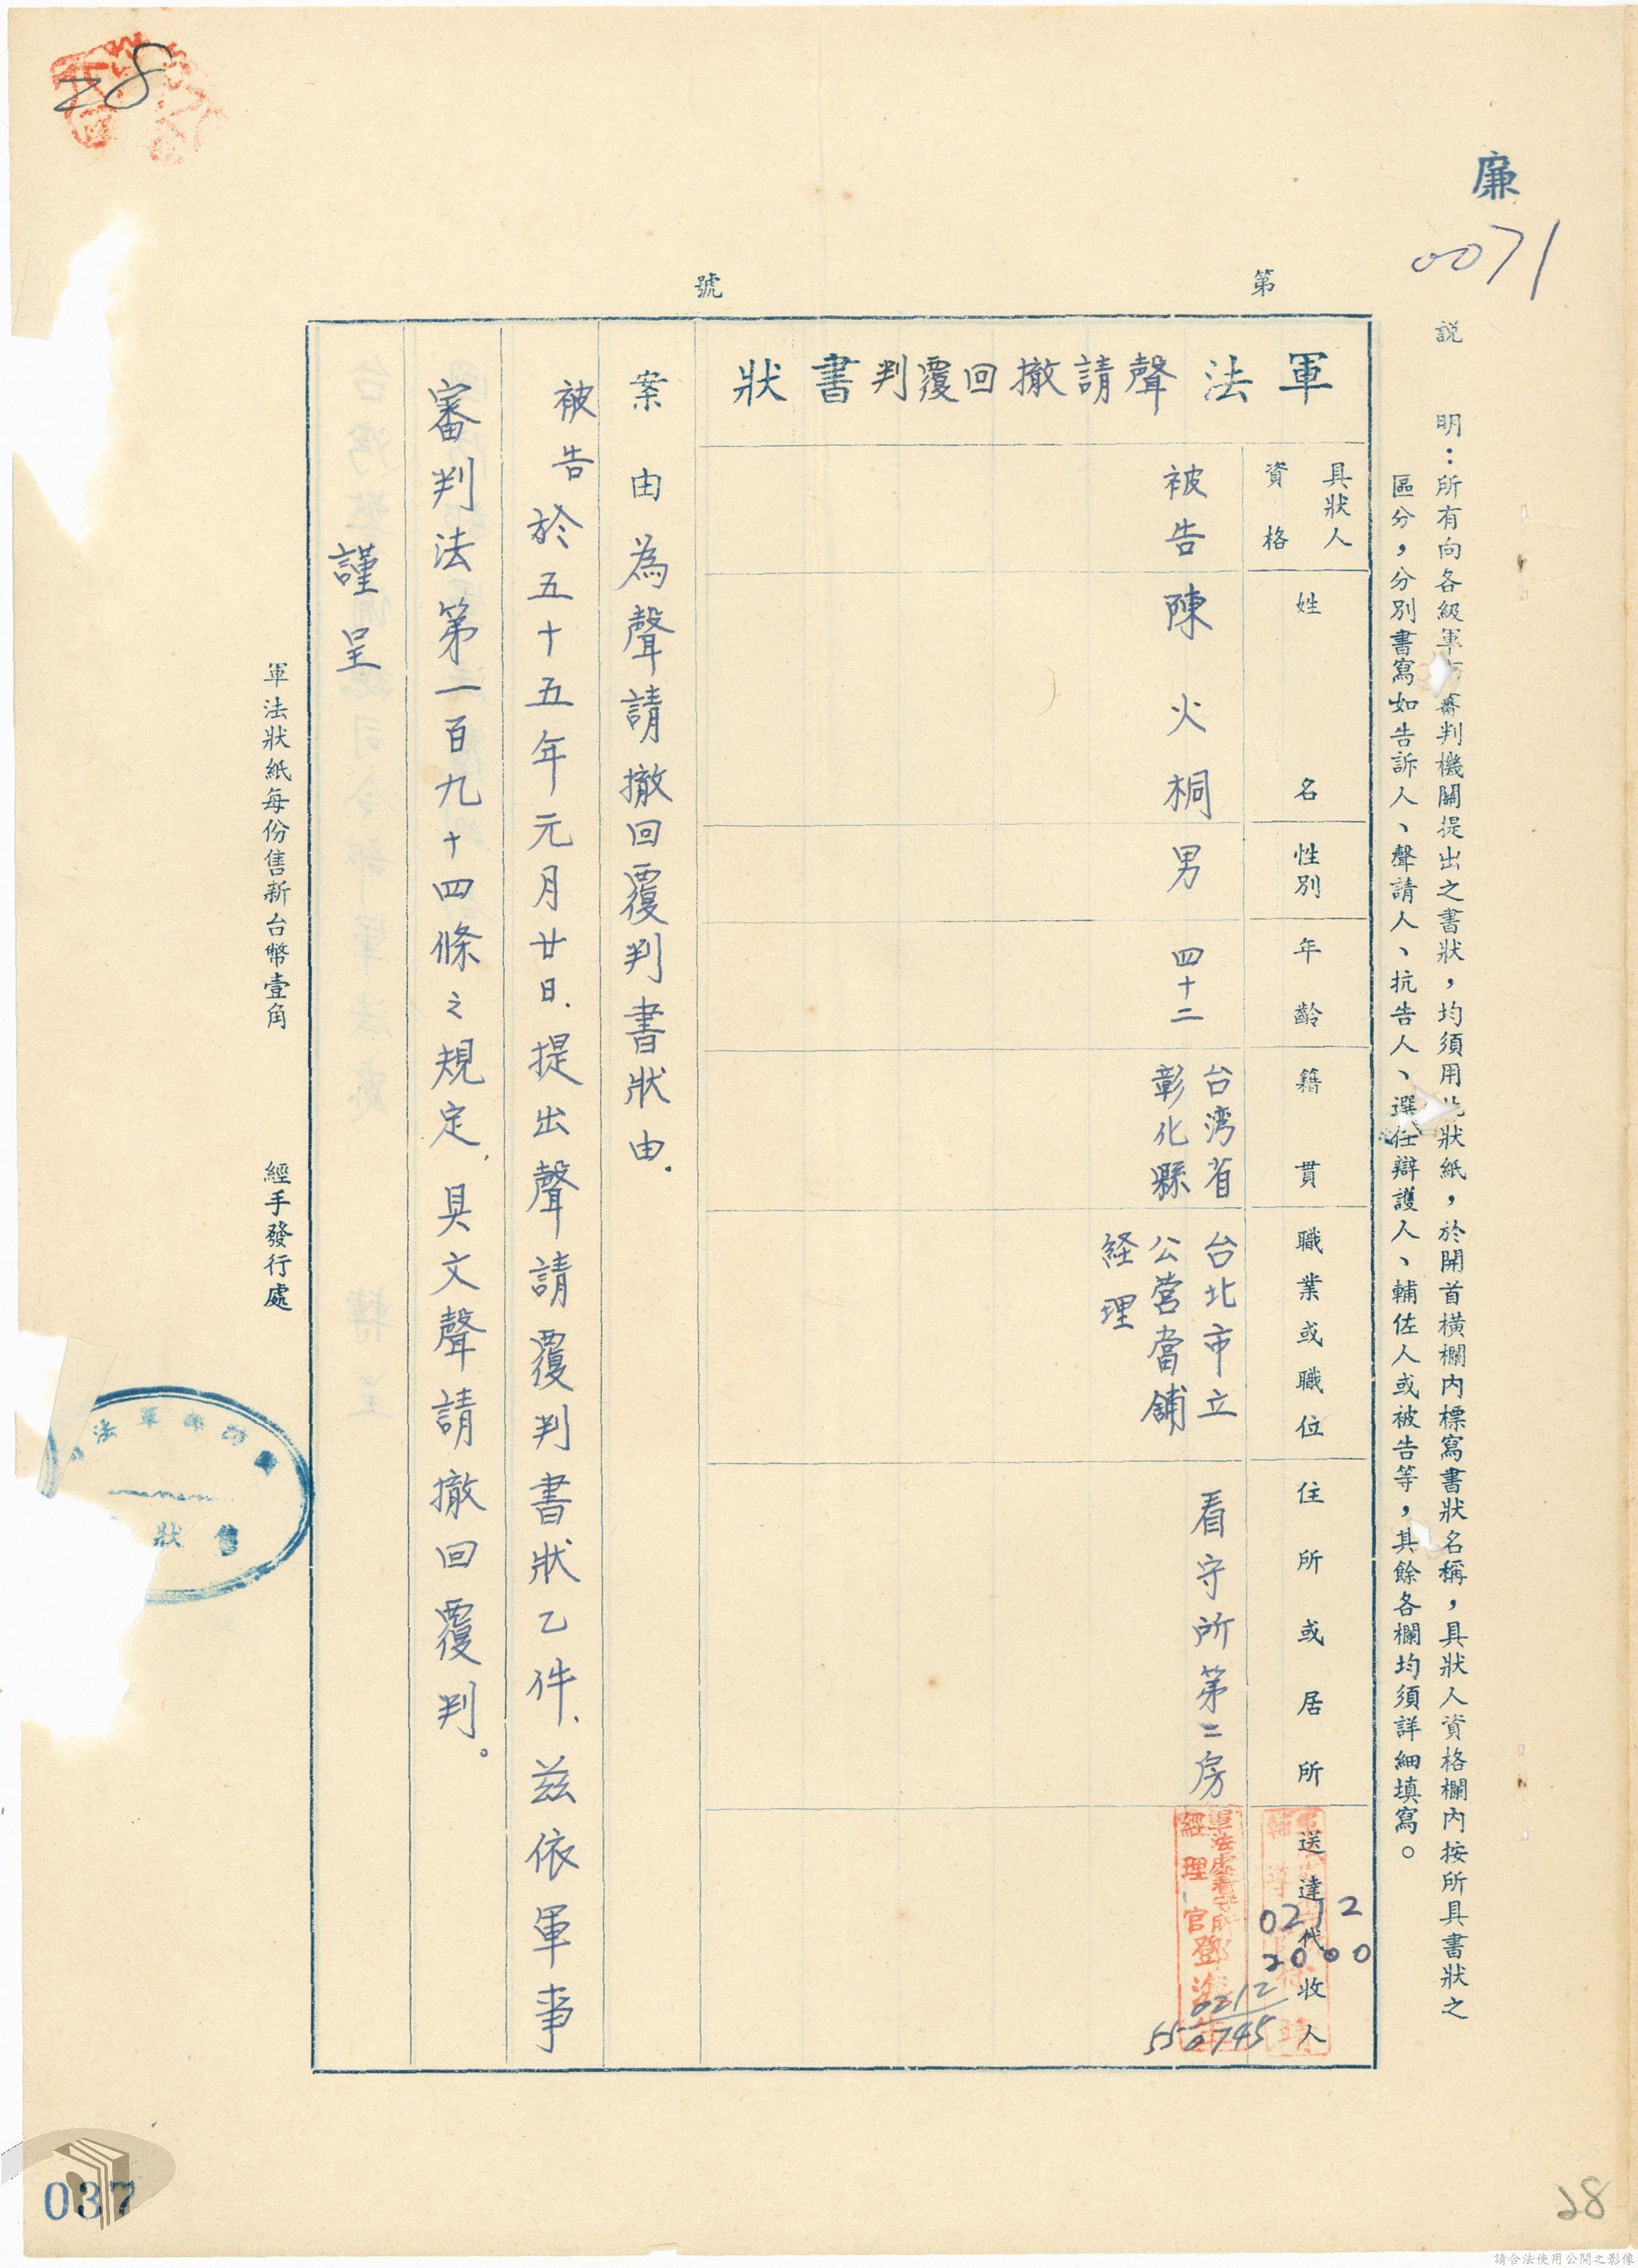 廉
0071
說　明：所有向各級軍　審判機關提出之書狀，均須用此狀紙，於開首橫欄內標寫書狀名稱，具狀人資格欄內按所具書狀之
區分，分別書寫如告訴人、聲請人、抗告人、選任辯護人、輔佐人或被告等，其餘各欄均須詳細填寫。
第　號
軍法聲請撤回覆判書狀
具狀人
資格
姓名
性別
年齡
籍貫
職業或職位
住所或居所
送達代收人
被告
陳火桐
男
四十二
台湾省
彰化縣
台北市立
公営當舖
経理
看守所第二房
0212
2000
軍法處看守所
經理官鄧
0212
55 0745
案由 為聲請撤回覆判書狀由.
被告於五十五年元月廿日.提出聲請覆判書狀乙件.茲依軍事
審判法第一百九十四條之規定,具文聲請撤回覆判。
謹呈
軍法狀紙每份售新台幣壹角　經手發行處
28
037
28
請合法使用公開之影像